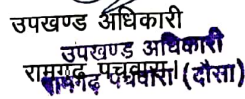 उपखण्ड अधिकारी
उपखण्ड अधिकारी
रामगढ़ पचवारा।
रामगढ़ पचवारा (दौसा)